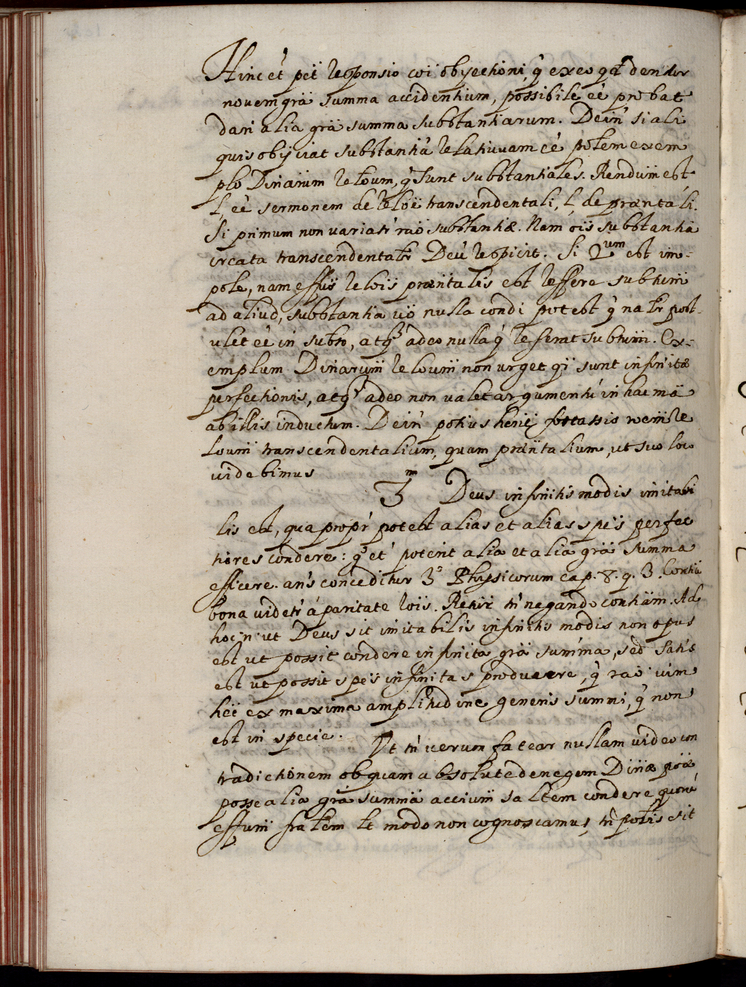 Hinc et pet responsio cōi obyectioni, q̄ ex eo qd dentur
novem grā summa accidentium, possibile eē probat
dari alia grā summa substantiarum. Dein si ali
quis obyciat substantiā relativam eē potem exem
plo Divinarum reloum, q̄ sunt substantiales. Rendum est
l, eē sermonem de reloe transcendentali, l, de prōentali.
Si primum non variatr rāo substantiæ. Nam oīs substantia
creata transcendentalr Deū respicit. Si 2um est im-
pole, nam effus relois prōentalis est referre subtum
ad aliud, substantia vō nulla condi potest q̄ natr post
ulet eē in subto, atq3 adeo nulla q̄ referat subtum. Ex-
emplum Divinarum reloum non urget q̄i sunt infinitæ
perfectionis, atq3 adeo non valet argumentū in hac mā
ab illis inductum. Dein potius henī fortassis rem re
loum transcendentalium, quam prōentalium, ut suo loco
videbimus
3m Deus infinitis modis imitabi
lis est, qua proptr potest alias et alias spēs perfec
tiores condere: q̄ et poterit alia et alia grā summa
efficere. ans conceditur 3o Physicorum cap. 8. q. 3. Contiā
bona videtr á paritate rois. Retur tn negando contiam. Ad
hoc n. ut Deus sit imitabilis infinitis modis non opus
est ut possit condere infinita grā summa, sed satis
est ut possit spēs infinitas producere, q̄ rāo vim
het ex maxima amplitudine generis summi, q̄ non
est in specie. Ut tn verum fatear nullam video con
tradictionem ob quam absolute denegem Divinæ poæ
posse alia grā summa acciūm saltem condere quorū
effum fralem te modo non cognoscamus, tn potis sit